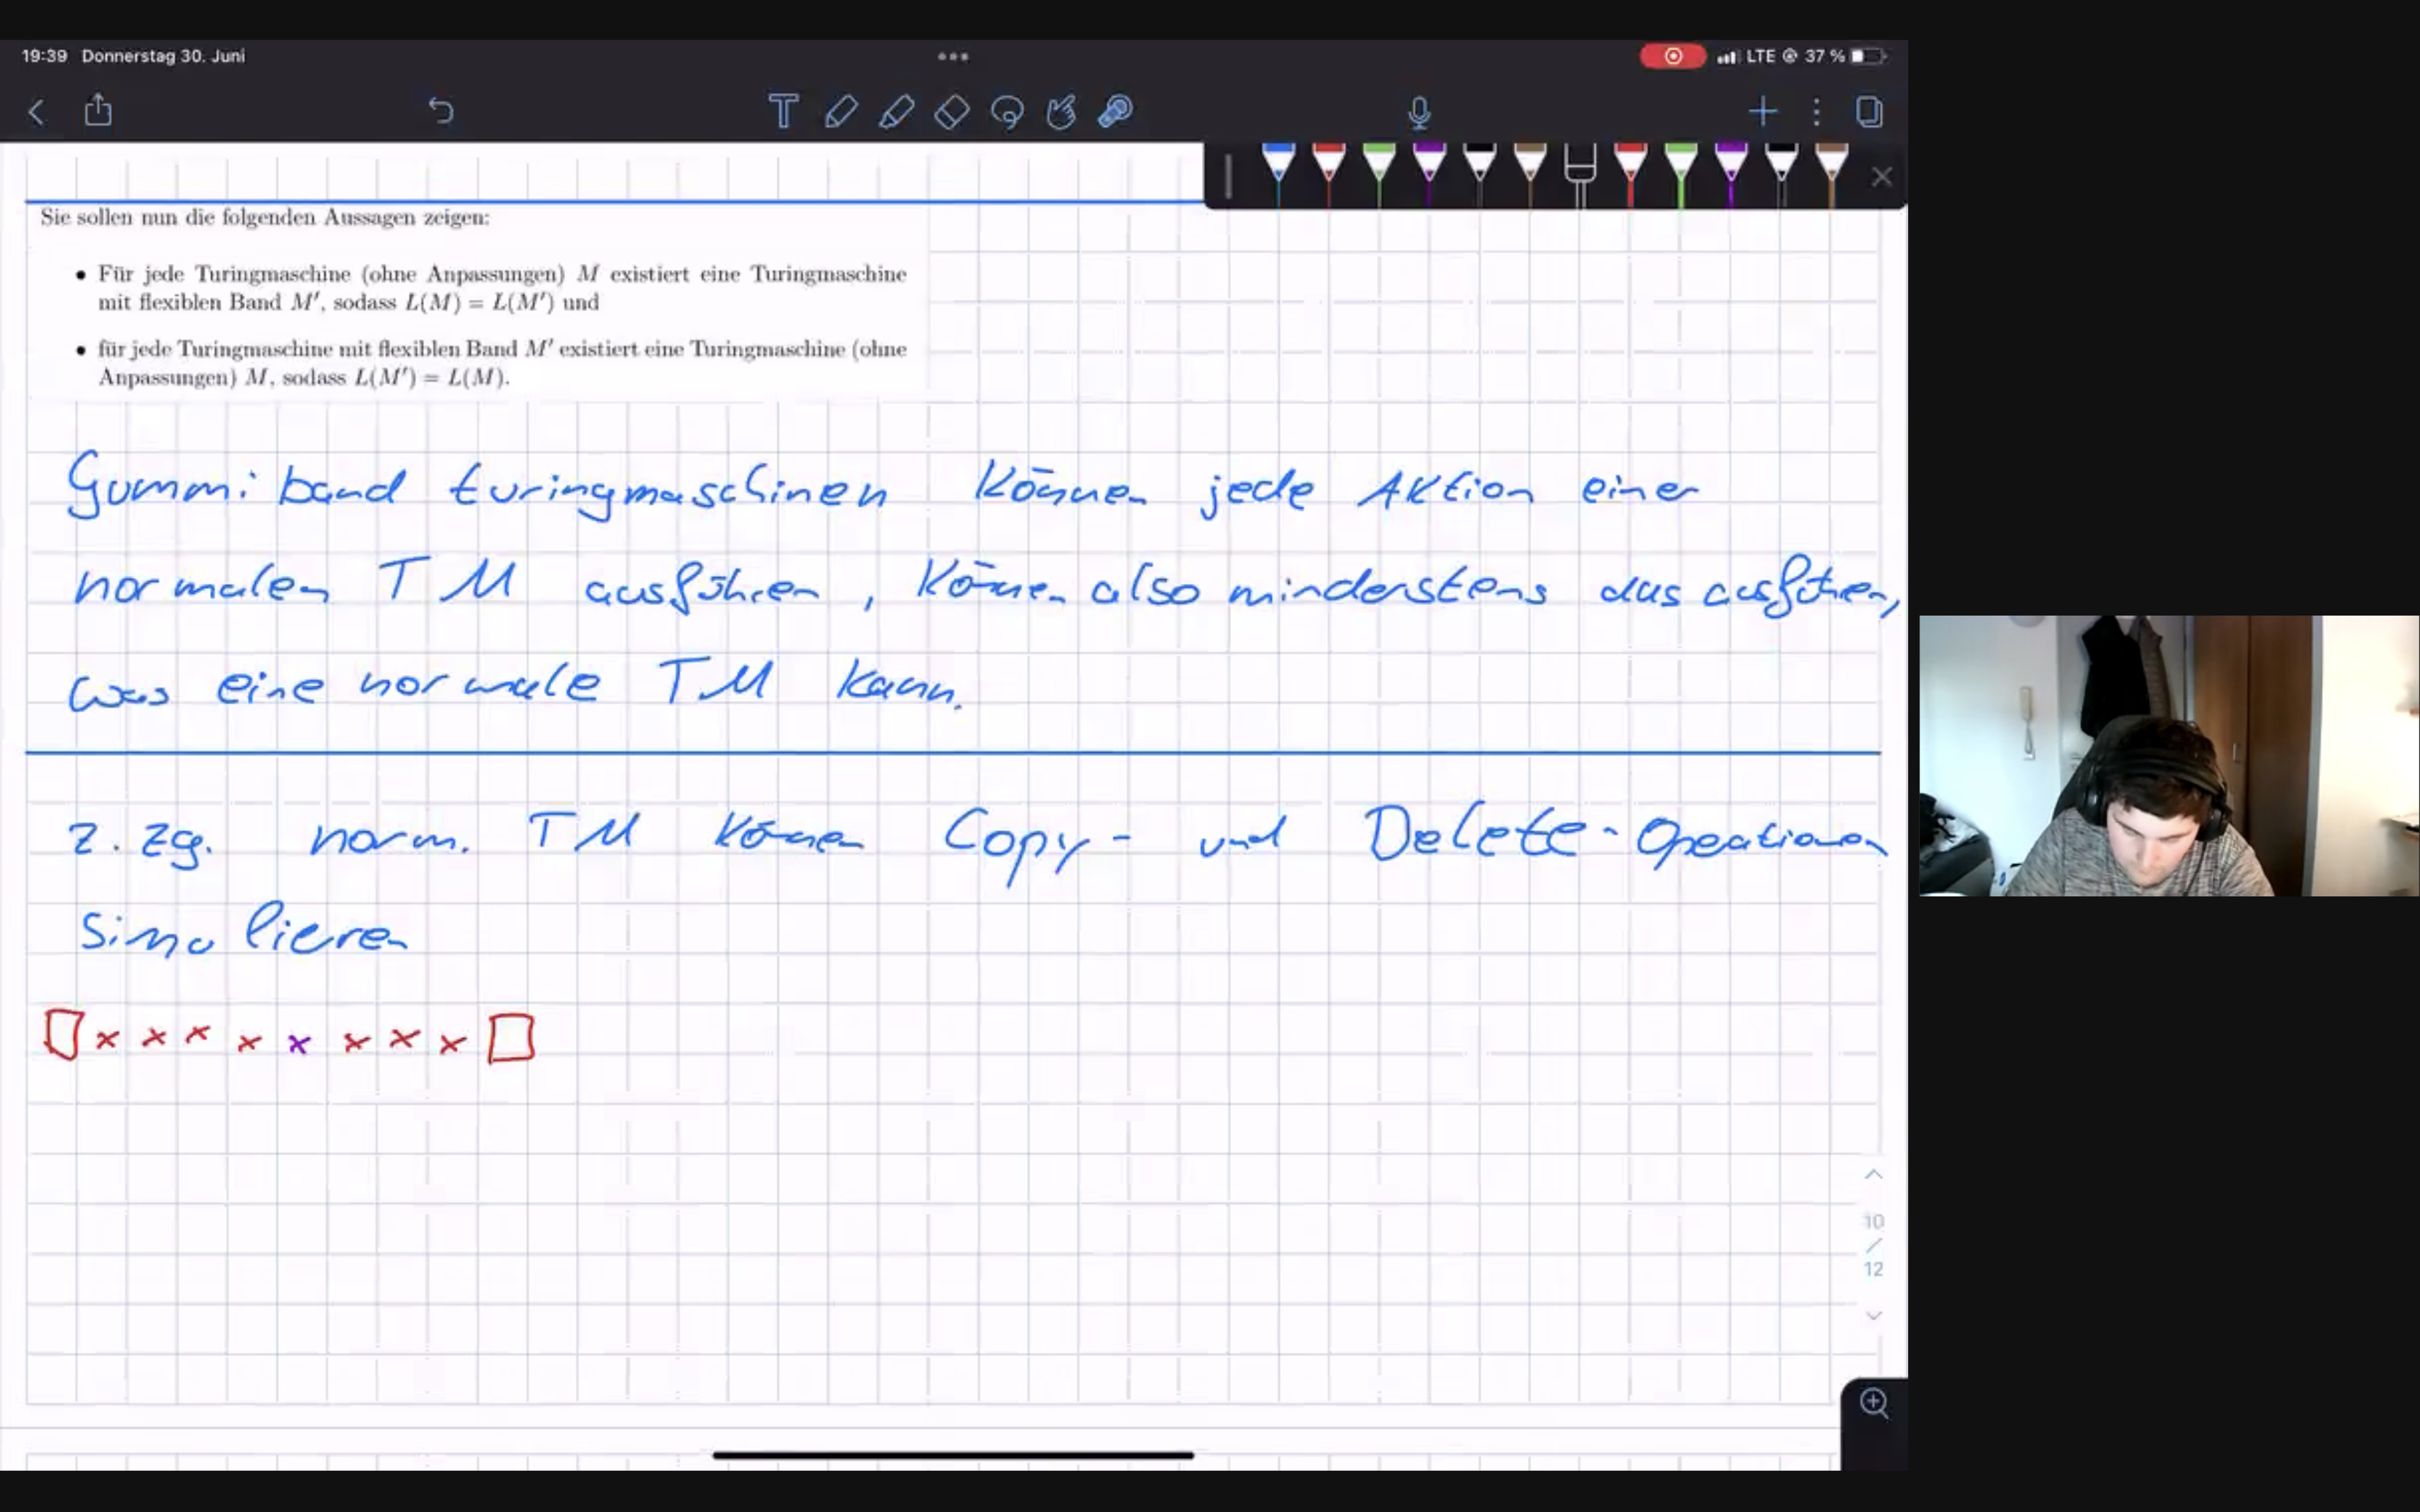 19:39 Donnerstag 30. Juni
LTE 37 %
Sie sollen nun die folgenden Aussagen zeigen:
• Für jede Turingmaschine (ohne Anpassungen) M existiert eine Turingmaschine
mit flexiblen Band M′, sodass L(M) = L(M′) und
• für jede Turingmaschine mit flexiblen Band M′ existiert eine Turingmaschine (ohne
Anpassungen) M, sodass L(M′) = L(M).
Gummiband turingmaschinen können jede Aktion einer
normalen TM ausführen, können also minderstens das ausführen,
was eine normale TM kann.
z.zg. norm. TM können Copy- und Delete-Operationen
simulieren
x x x x x x x x
10
/
12